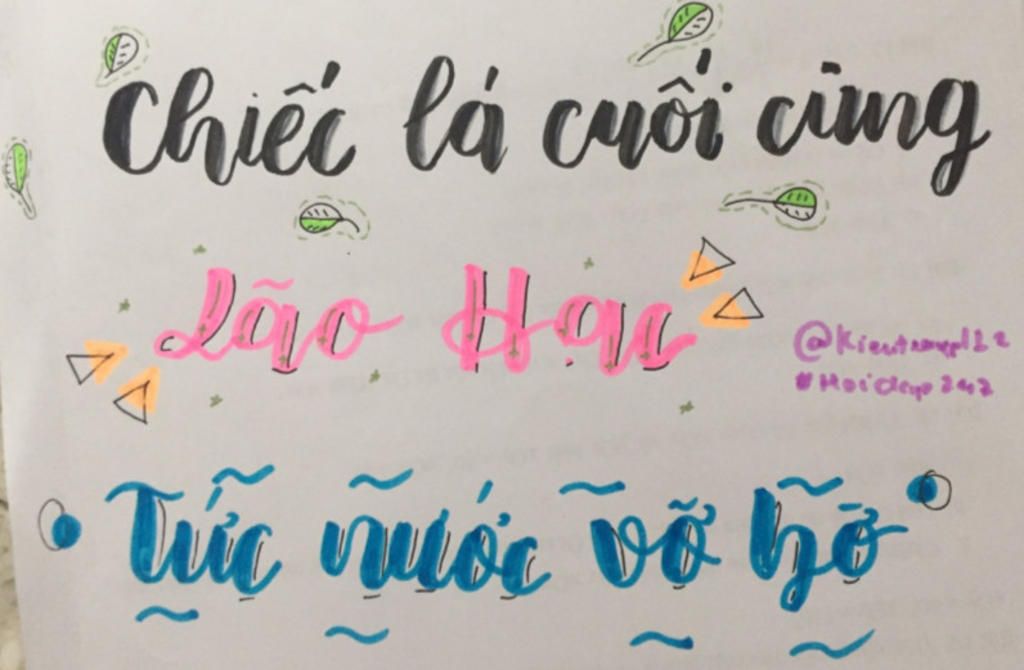 Chiếc lá cuối cùng
Lão Hạc
#Hoidap247
Tức nước vỡ bờ